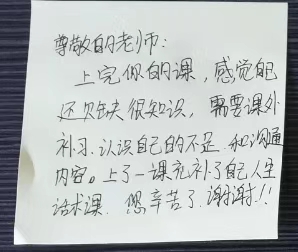 尊敬的老师:
上完你的课,感觉自己
还欠缺很知识,需要课外
补习.认识自己的不足.和沟通
内容。上了一课充补了自己人生
话术课.您辛苦了.谢谢!!